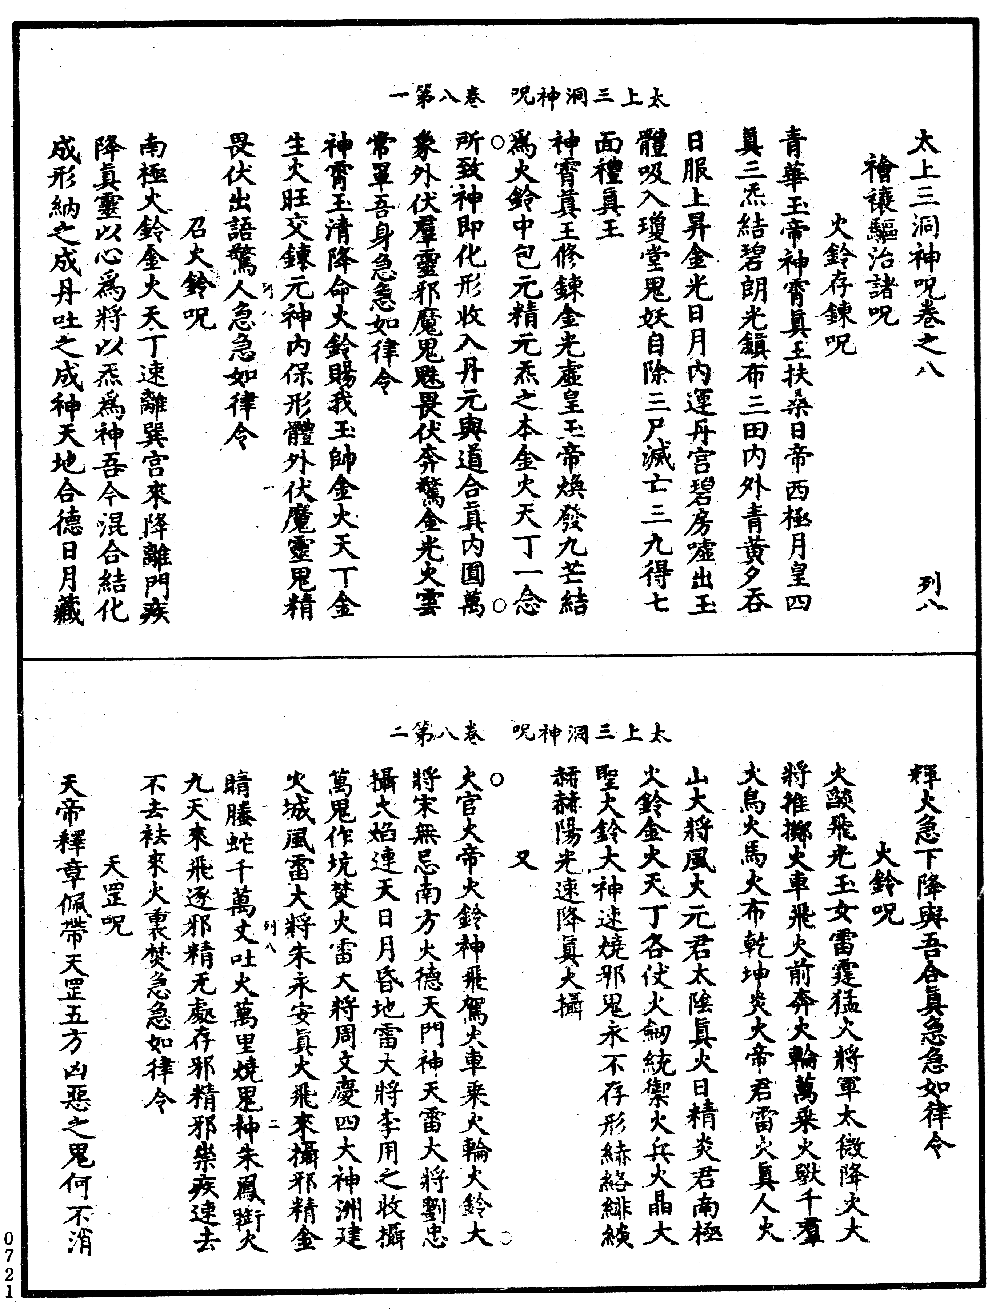 太上三洞神呪　卷八第一
太上三洞神呪卷之八　列八
禬禳驅治諸呪
火鈴存鍊呪
青華玉帝神霄眞王扶桑日帝西極月皇四
眞三炁結碧朗光鎮布三田內外青黃夕吞
日服上昇金光日月內運丹宮碧房噓出玉
體吸入瓊堂鬼妖自除三尸滅亡三九得七
面禮眞王
神霄眞王修鍊金光虛皇玉帝煥發九芒結
爲火鈴中包元精元炁之本金火天丁一念
所致神即化形收入丹元與道合眞內圓萬
象外伏羣靈邪魔鬼魅畏伏奔驚金光火雲
常罩吾身急急如律令
神霄玉清降命火鈴賜我玉帥金火天丁金
生火旺交鍊元神內保形體外伏魔靈鬼精
畏伏出語驚人急急如律令
召火鈴呪
南極火鈴金火天丁速離巽宮來降離門疾
降眞靈以心爲將以炁爲神吾今混合結化
成形納之成丹吐之成神天地合德日月藏
太上三洞神呪　卷八第二
輝火急下降與吾合眞急急如律令
火鈴呪
火燄飛光玉女雷霆猛火將軍太微降火大
將推擲火車飛火前奔火輪萬乘火獸千羣
火鳥火馬火布乾坤炎火帝君雷火眞人火
山大將風火元君太陰眞火日精炎君南極
火鈴金火天丁各仗火劒統禦火兵火晶大
聖火鈴大神速燒邪鬼永不存形絲絡緋緂
赫赫陽光速降眞火攝
又
火官火帝火鈴神飛駕火車乘火輪火鈴大
將宋無忌南方火德天門神天雷大將劉忠
攝火焰連天日月昏地雷大將李用之收攝
萬鬼作坑焚火雷大將周文慶四大神洲建
火城風雷大將朱永安眞火飛來攝邪精金
睛騰蛇千萬丈吐火萬里燒鬼神朱鳳銜火
九天來飛逐邪精无處存邪精邪祟疾速去
不去袪來火裏焚急急如律令
天罡呪
天帝釋章佩帶天罡五方凶惡之鬼何不消
列八　二
0721